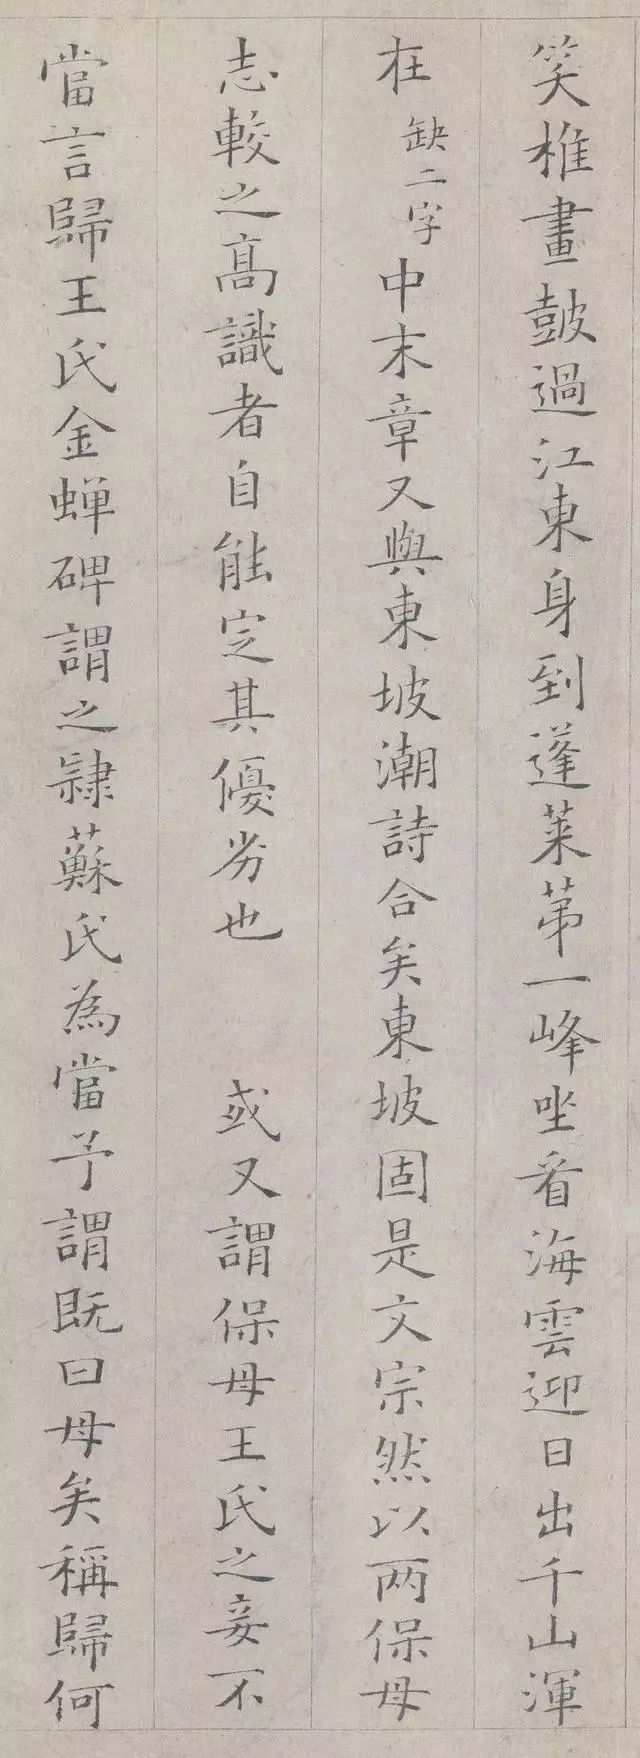 笑椎畫鼓過江東身到蓬萊苐一峰唑看海雲迎日出千山渾
在缺二字中末章又與東坡潮詩合矣東坡固是文宗然以两保母
志較之高識者自能定其優劣也 或又謂保母王氏之妾不
當言歸王氏金蟬碑謂之隸蘇氏為當予謂既曰母矣稱歸何